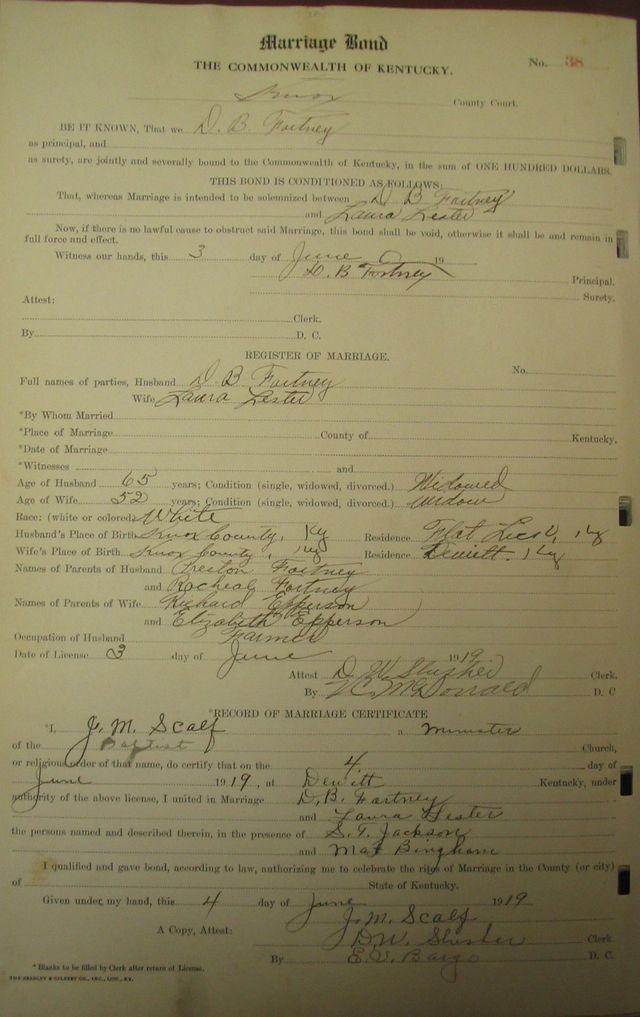 Marriage Bond
THE COMMONWEALTH OF KENTUCKY.
No. 38
Knox County Court.
BE IT KNOWN, That we D. B. Fortney
as principal, and
as surety, are jointly and severally bound to the Commonwealth of Kentucky, in the sum of ONE HUNDRED DOLLARS.
THIS BOND IS CONDITIONED AS FOLLOWS:
That, whereas Marriage is intended to be solemnized between D B Fortney
and Laura Lester
Now, if there is no lawful cause to obstruct said Marriage, this bond shall be void, otherwise it shall be and remain in
full force and effect.
Witness our hands, this 3 day of June 19
D. B Fortney Principal.
Surety.
Attest:
Clerk.
By D. C.
REGISTER OF MARRIAGE.
No.
Full names of parties, Husband D B Fortney
Wife Laura Lester
*By Whom Married
*Place of Marriage County of Kentucky.
*Date of Marriage
*Witnesses and
Age of Husband 65 years; Condition (single, widowed, divorced.) Widowed
Age of Wife 52 years; Condition (single, widowed, divorced.) Widow
Race: (white or colored) White
Husband's Place of Birth Knox County, Ky Residence Flat Lick, Ky
Wife's Place of Birth Knox County, Ky Residence Dewitt. Ky
Names of Parents of Husband Preston Fortney
and Rocheal Fortney
Names of Parents of Wife Richard Epperson
and Elizabeth Epperson
Occupation of Husband Farmer
Date of License 3 day of June 1919.
Attest D. W. Slusher Clerk.
By McDonald D. C
*RECORD OF MARRIAGE CERTIFICATE
*I, J. M. Scalf a Minister
of the Baptist Church,
or religious order of that name, do certify that on the 4 day of
June 1919, at Dewitt Kentucky, under
authority of the above license, I united in Marriage D. B. Fortney
and Laura Lester
the persons named and described therein, in the presence of S. T. Jackson
and Mat Bingham
I qualified and gave bond, according to law, authorizing me to celebrate the rites of Marriage in the County (or city)
of State of Kentucky.
Given under my hand, this 4 day of June 1919
J. M. Scalf
A Copy, Attest: D. W. Slusher Clerk
By E. V. Bargo D. C.
* Blanks to be filled by Clerk after return of License.
THE BRADLEY & GILBERT CO., INC., LOU., KY.